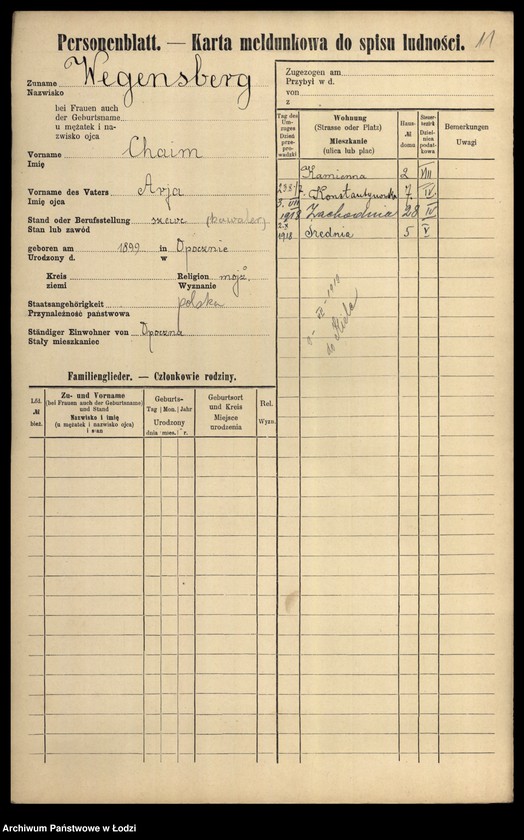 Personenblatt. — Karta meldunkowa do spisu ludności.
11
Zuname Wegensberg
Nazwisko
bei Frauen auch
der Geburtsname
u mężatek i na-
zwisko ojca
Vorname Chaim
Imię
Vorname des Vaters Arja
Imię ojca
Stand oder Berufsstellung szewc (kawaler)
Stan lub zawód
geboren am 1899 in Opocznie
Urodzony d. w
Kreis Religion mojż.
ziemi Wyznanie
Staatsangehörigkeit polska
Przynależność państwowa
Ständiger Einwohner von Opoczna
Stały mieszkaniec
Zugezogen am
Przybył w d.
von
z
Tag des Um-zuges Dzień prze-prowadzki
Wohnung (Strasse oder Platz) Mieszkanie (ulica lub plac)
Haus- № domu
Steuer-bezirk Dziel-nica podat-kowa
Bemerkungen Uwagi
Kamienna 2 VIII
23 8 17. Konstantynowska 7 IV
3. VII 1918 Zachodnia 28 IV
2.X 1918 Średnia 5 V
1919
do
Familienglieder. — Członkowie rodziny.
Lfd. № bież.
Zu- und Vorname (bei Frauen auch der Geburtsname) und Stand Nazwisko i imię (u mężatek i nazwisko ojca) i stan
Geburts- Tag | Mon. | Jahr Urodzony dnia | mies. | r.
Geburtsort und Kreis Miejsce urodzenia
Rel. Wyzn.
Archiwum Państwowe w Łodzi